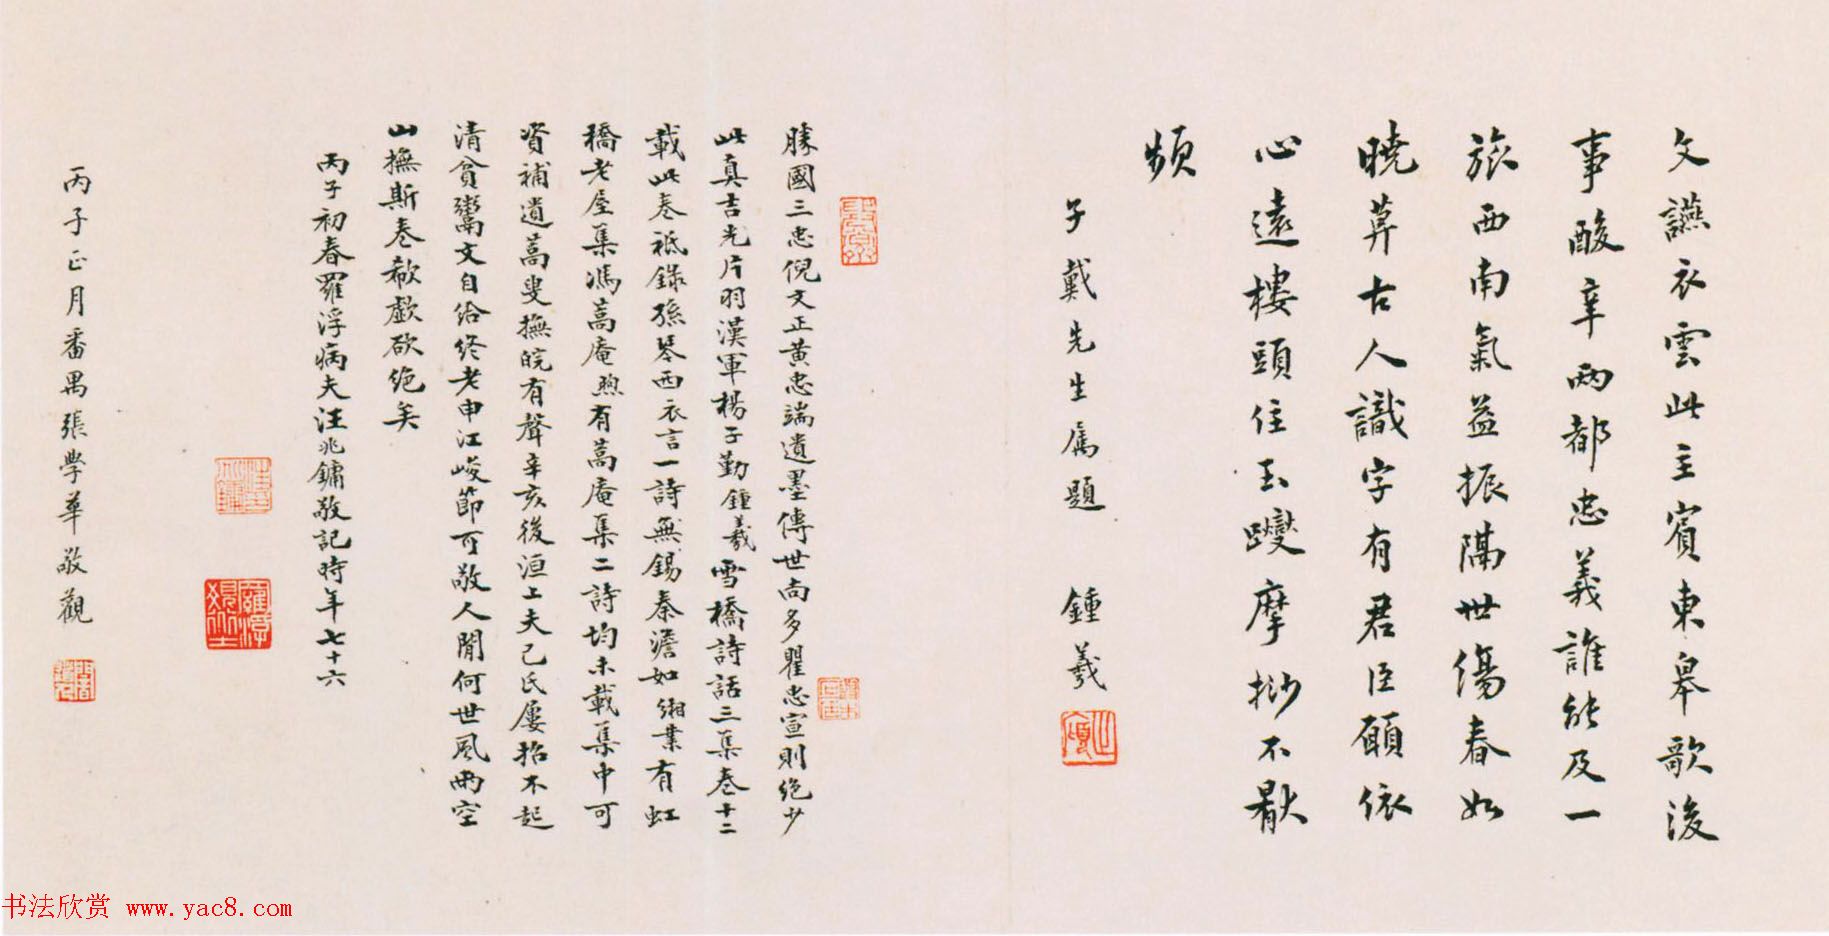 文讌衣雲此主賓東皋歌後
事酸辛兩都忠義誰能及一
旅西南氣益振隔世傷春如
曉夢古人識字有君臣願依
心遠樓頭住玉躞摩挱不猒
頻
子戴先生属題 鍾羲
勝國三忠倪文正黄忠端遺墨傳世尚多瞿忠宣則絶少
此真吉光片羽漢軍楊子勤鍾羲雪橋詩話三集卷十二
載此卷祗錄孫琴西衣言一詩無錫秦澹如緗業有虹
橋老屋集馮蒿庵煦有蒿庵集二詩均未載集中可
資補遺蒿叟撫皖有聲辛亥後洹上夫己氏屢招不起
清貧鬻文自給終老申江峻節可敬人間何世風雨空
山撫斯卷欷歔欲絶矣
丙子初春羅浮病夫汪兆鏞敬記時年七十六
丙子正月番禺張學華敬觀
书法欣赏 www.yac8.com